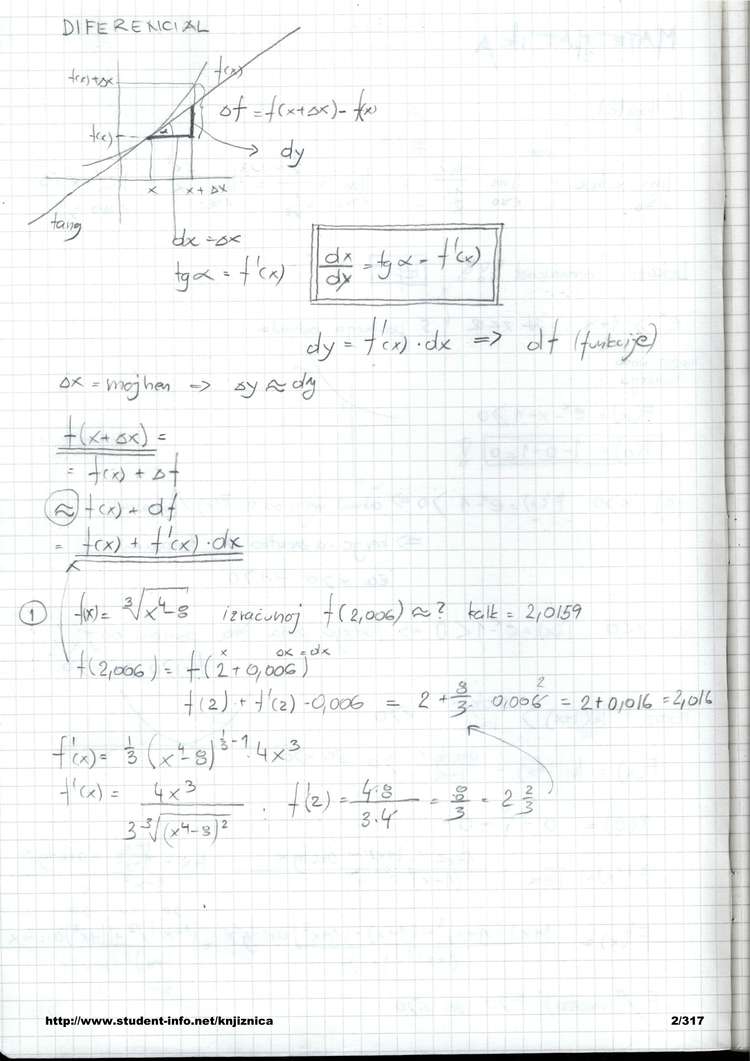 DIFERENCIAL
f(x)+Δx
f(x)
Δf = f(x+Δx) - f(x)
f(x)
α
dy
x
x + Δx
tang
dx = Δx
tgα = f'(x)
dx/dy = tgα = f'(x)
dy = f'(x) · dx => df (funkcije)
Δx = majhen => Δy ≈ dy
f(x+Δx) =
= f(x) + Δf
≈ f(x) + df
= f(x) + f'(x) · dx
1 f(x) = ∛(x⁴-8) izračunaj f(2,006) ≈ ? kalk = 2,0159
x Δx = dx
f(2,006) = f(2 + 0,006)
f(2) + f'(2) · 0,006 = 2 + 8/3 · 0,006 2 = 2 + 0,016 = 2,016
f'(x) = 1/3 (x⁴-8)^(1/3 - 1) · 4x³
f'(x) = 4x³ / 3∛(x⁴-8)² ; f'(2) = 4·8 / 3·4 = 8/3 = 2 2/3
http://www.student-info.net/knjiznica 2/317